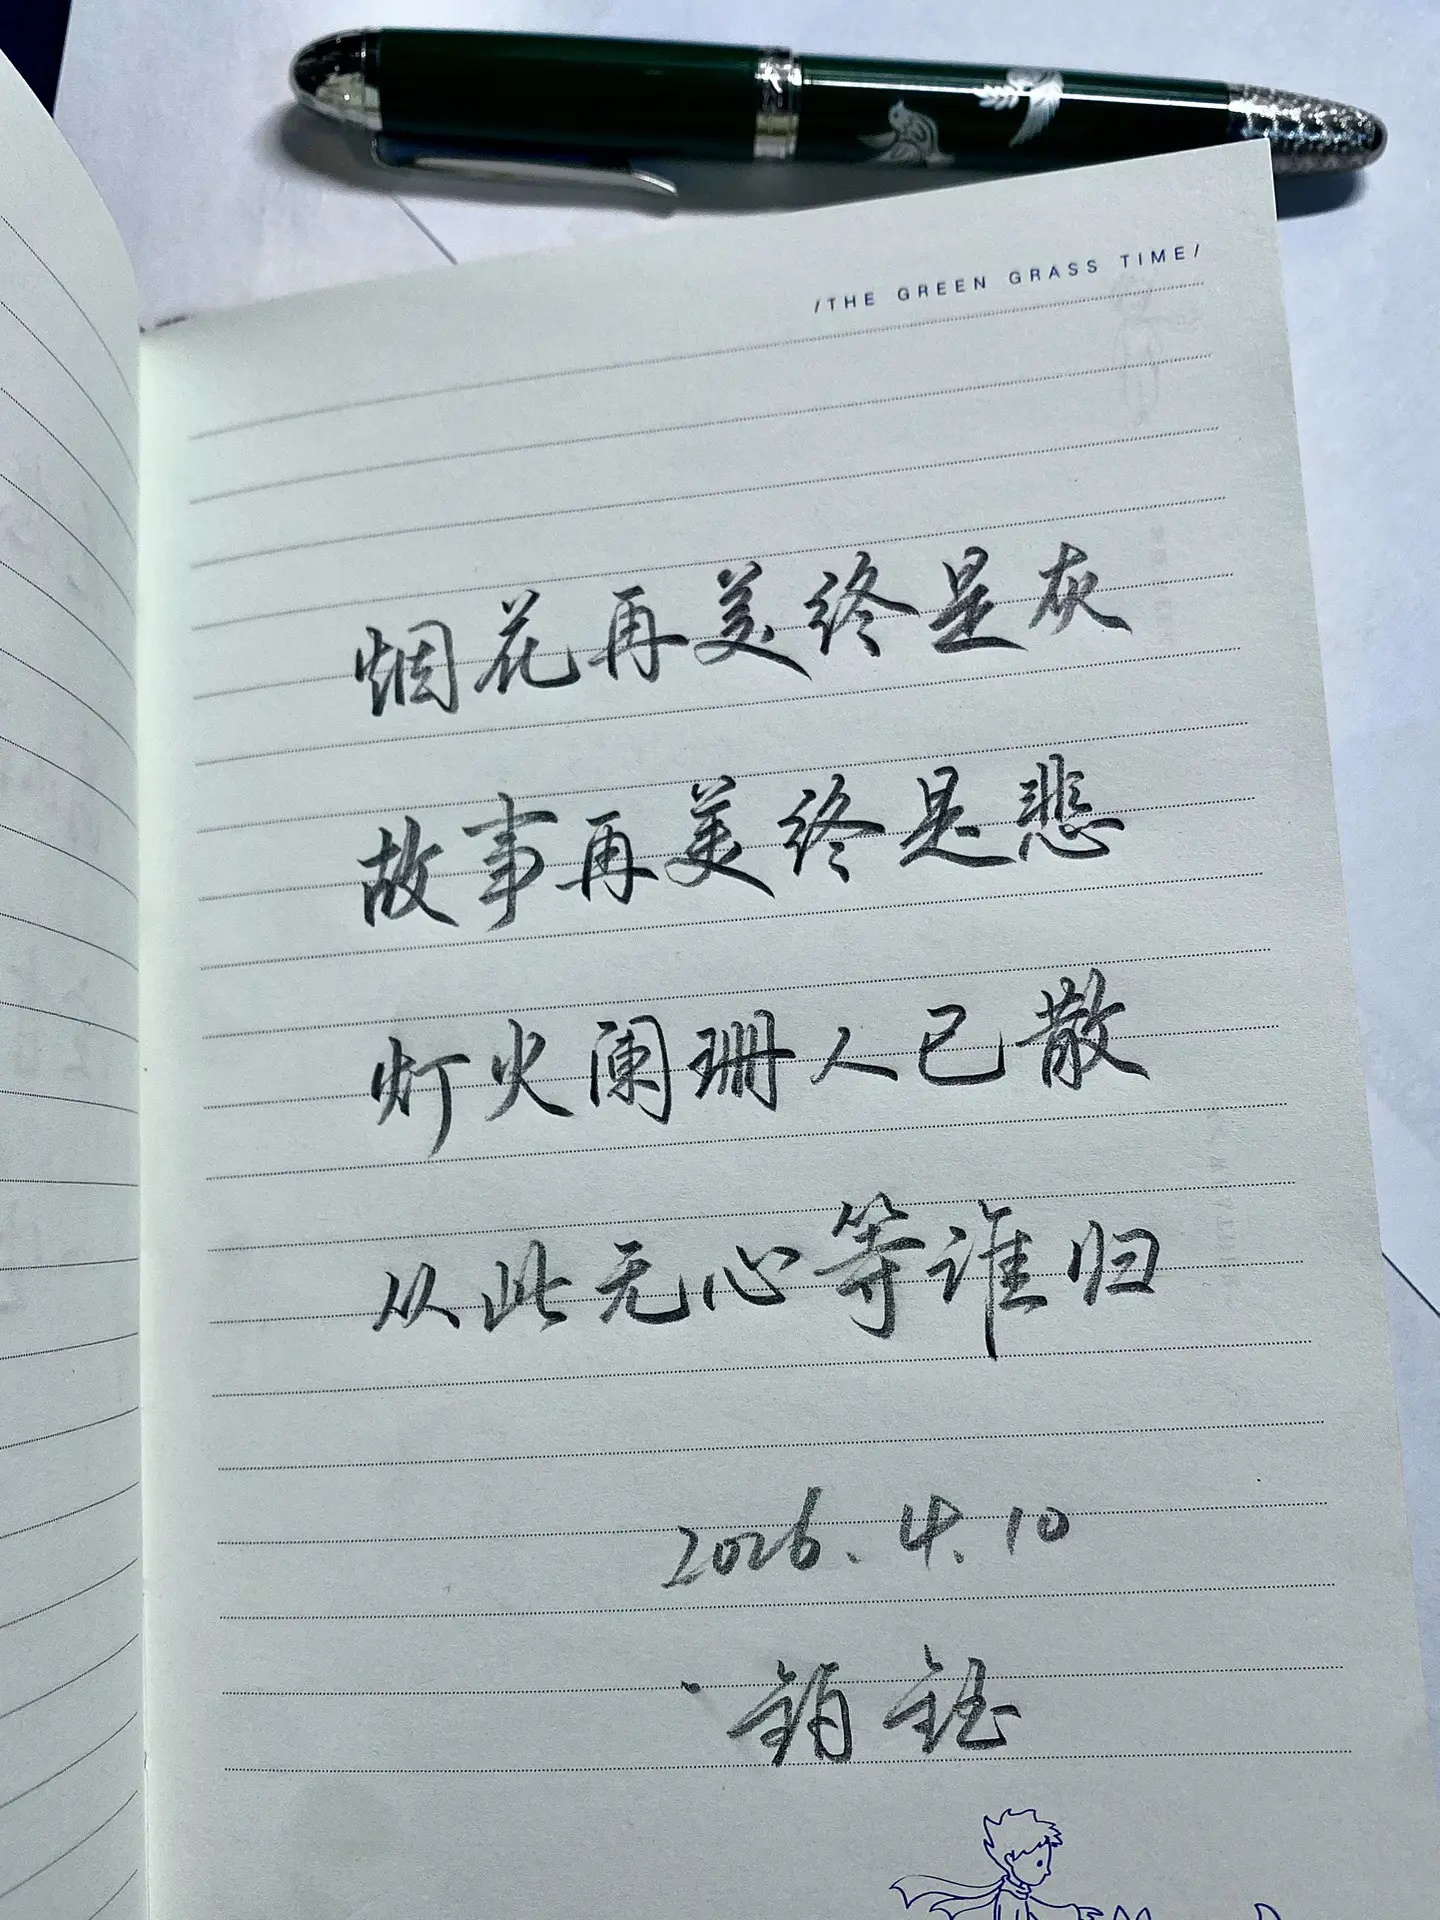 /THE GREEN GRASS TIME/
烟花再美终是灰
故事再美终是悲
灯火阑珊人已散
从此无心等谁归
2026.4.10